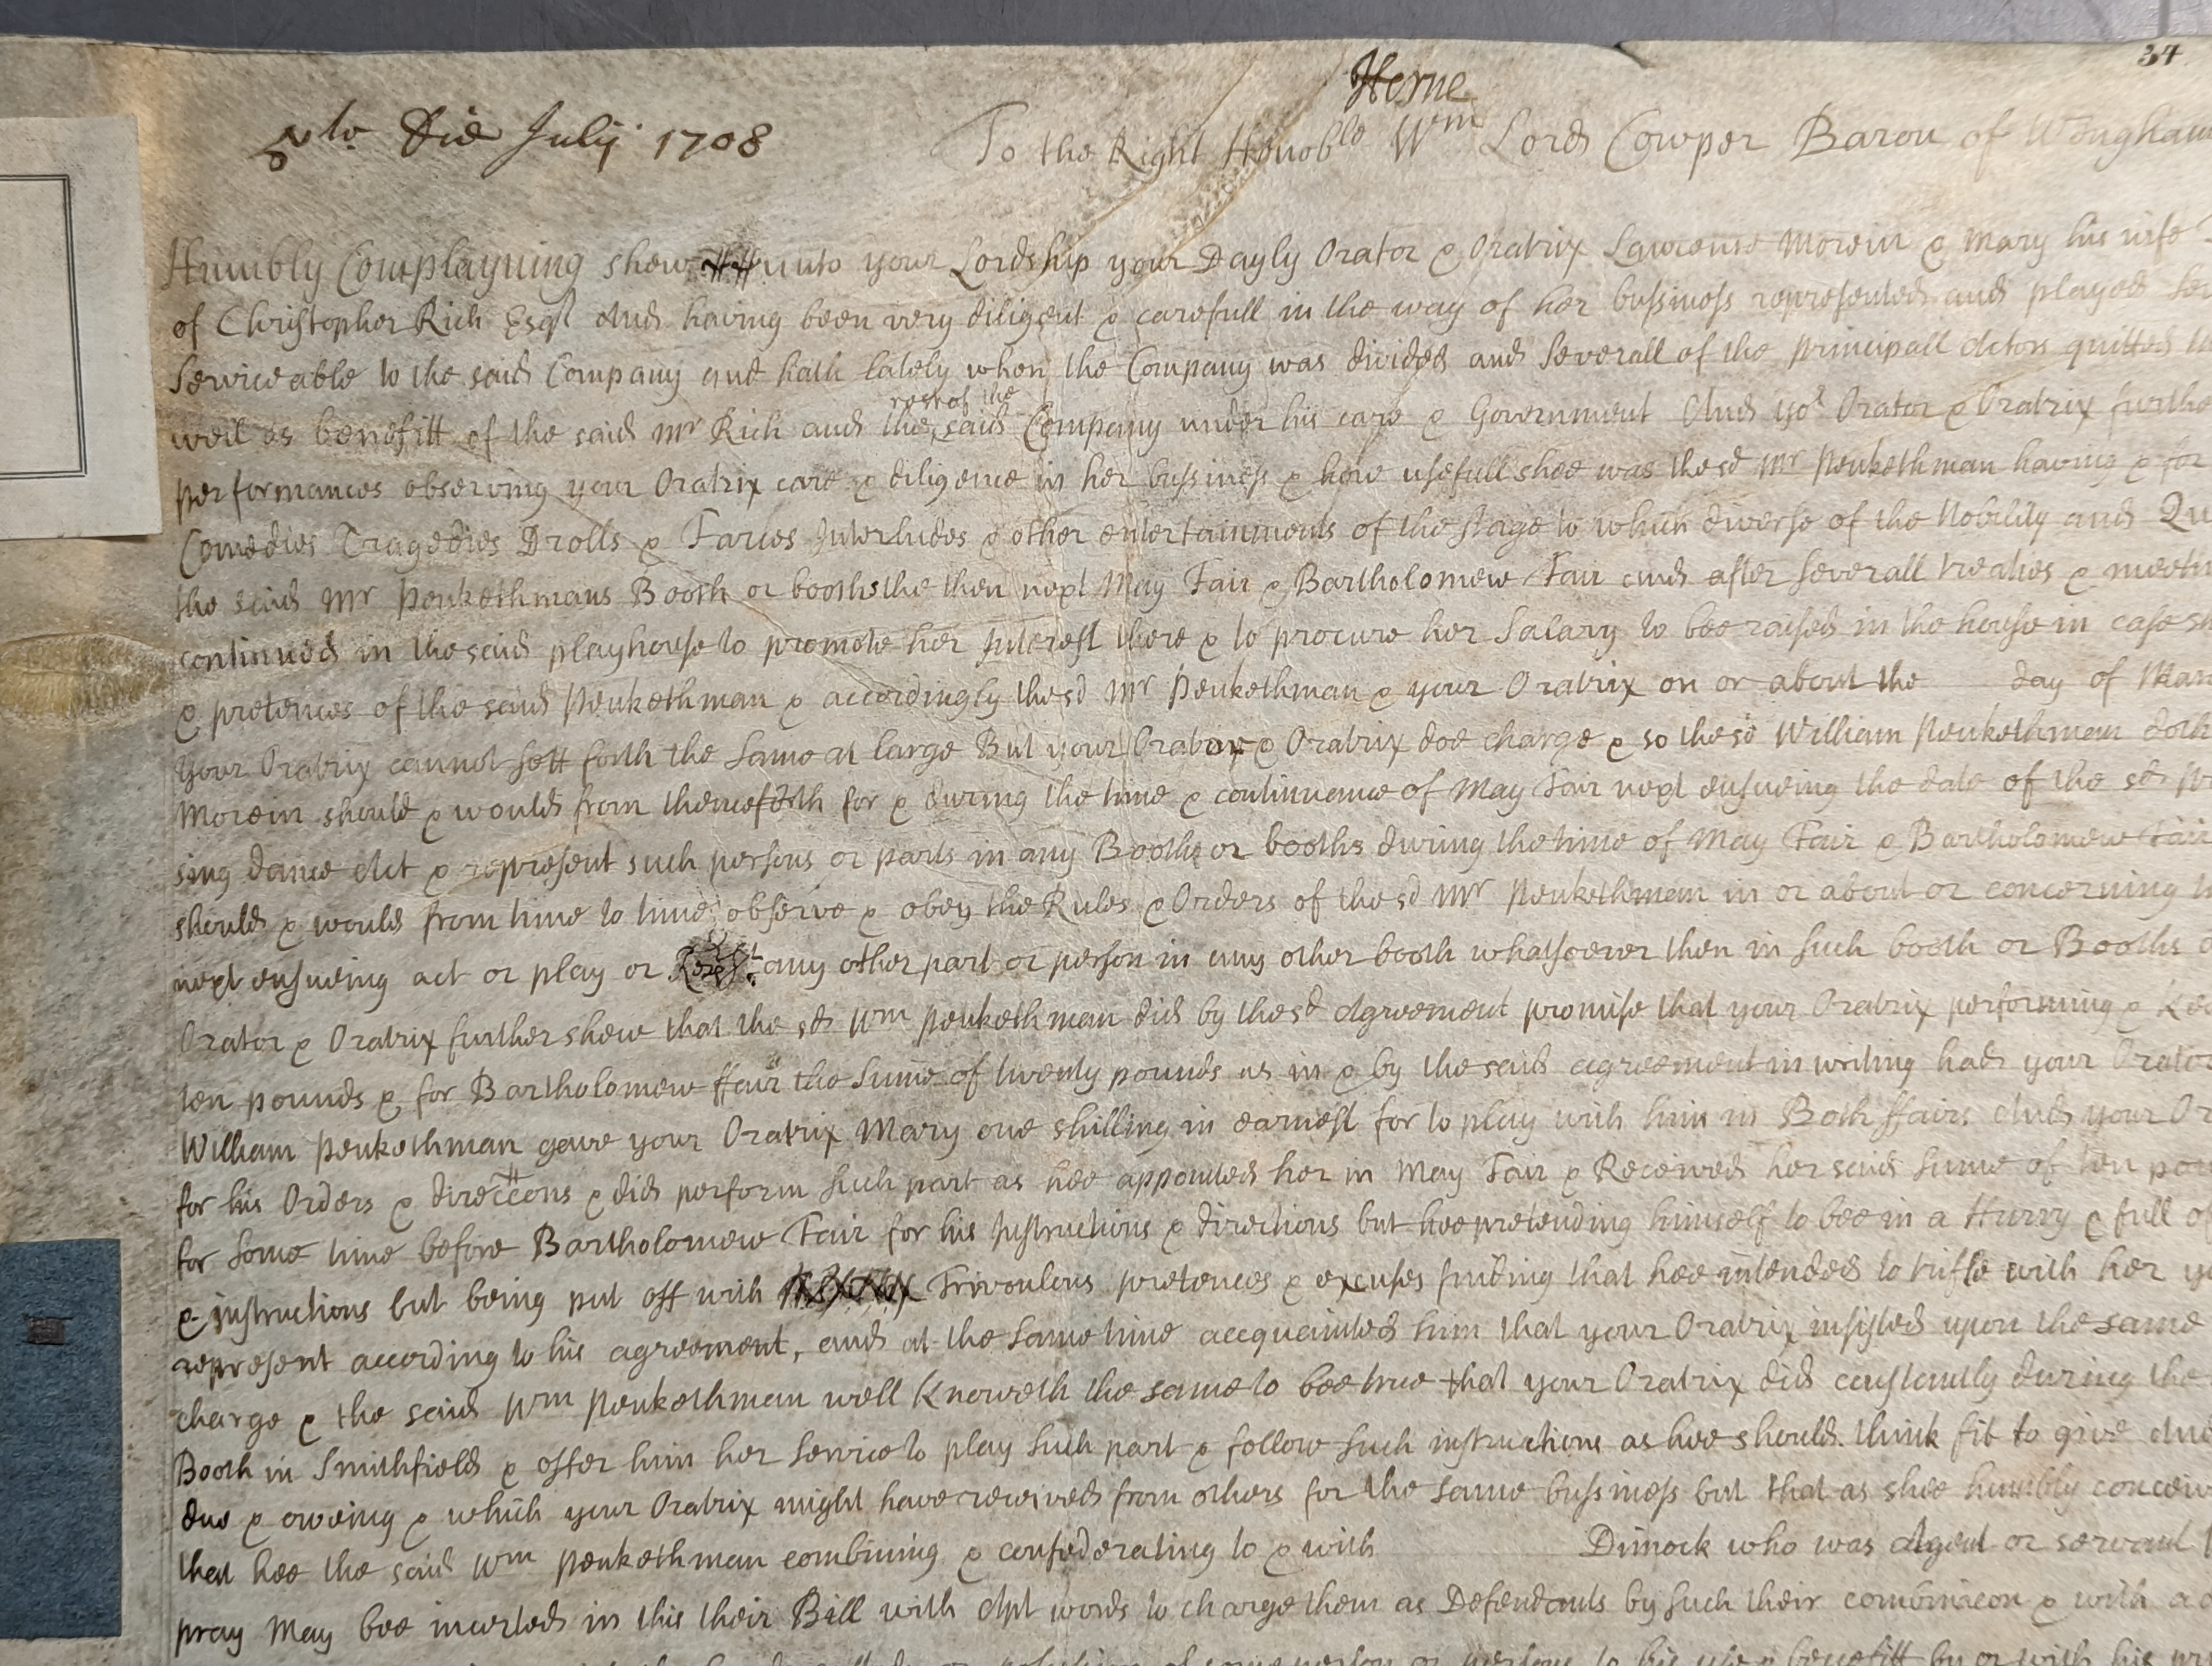 34
Herne
5to Die July 1708
To the Right Honoble Wm Lord Cowper Baron of Wingham
Humbly Complayning shew unto your Lordship your Dayly Orator & Oratrix Lawrence Morein & Mary his wife
of Christopher Rich Esqr And having been very diligent & carefull in the way of her bussiness represented and played
Serviceable to the said Company and hath lately when the Company was divided and severall of the principall Actors quitted
well as benefitt of the said Mr Rich and the rest of the said Company under his care & Government And yor Orator & Oratrix furthe
performances observing your Oratrix care & diligence in her bussiness & how usefull shee was the sd Mr Penkethman having & for
Comedies Tragedies Drolls & Farces Interludes & other entertainments of the stage to which diverse of the Nobility and Qu
the said Mr Penkethmans Booth or booths the then next May Fair & Bartholomew Fair and after severall treaties & meeti
continued in the said playhouse to promote her Interest there & to procure her Salary to bee raised in the house in case sh
& pretences of the said Penkethman & accordingly the sd Mr Penkethman & your Oratrix on or about the day of Mar
your Oratrix cannot sett forth the same at large But your Orator & Oratrix doe charge & so the sd William Penkethman doth
Morein should & would from thenceforth for & during the time & continuance of May Fair next ensueing the date of the sd
sing dance Act & represent such persons or parts in any Booth or booths during the time of May Fair & Bartholomew Fair
should & would from time to time observe & obey the Rules & Orders of the sd Mr Penkethman in or about or concerning
next ensueing act or play or any other part or person in any other booth whatsoever then in such booth or Booths
Orator & Oratrix further shew that the sd Wm Penkethman did by the sd Agreement promise that your Oratrix performing & Ke
ten pounds & for Bartholomew ffair the sume of twenty pounds as in & by the said agreement in writing had your Orator
William Penkethman gave your Oratrix Mary one shilling in earnest for to play with him in Both ffairs And your Or
for his Orders & direccons & did perform such part as hee appointed her in May Fair & Received her said sume of ten po
for some time before Bartholomew Fair for his Instructions & directions but hee pretending himself to bee in a Hurry & full of
& instructions but being put off with Frivoulous pretences & excuses finding that hee intended to trifle with her
represent according to his agreement, and at the same time acquainted him that your Oratrix insisted upon the same
charge & the said Wm Penkethman well Knoweth the same to bee true that your Oratrix did constantly during the
Booth in Smithfield & offer him her service to play such part & follow such instructions as hee should think fit to give And
due & oweing & which your Oratrix might have received from others for the same bussiness but that as shee humbly conceiv
that hee the said Wm Penkethman combining & confederating to & with Dimock who was Agent or servant
pray May bee incerted in this their Bill with Apt words to charge them as Defendants by such their combinacon & with a
person or persons to his use & benefitt by or with his